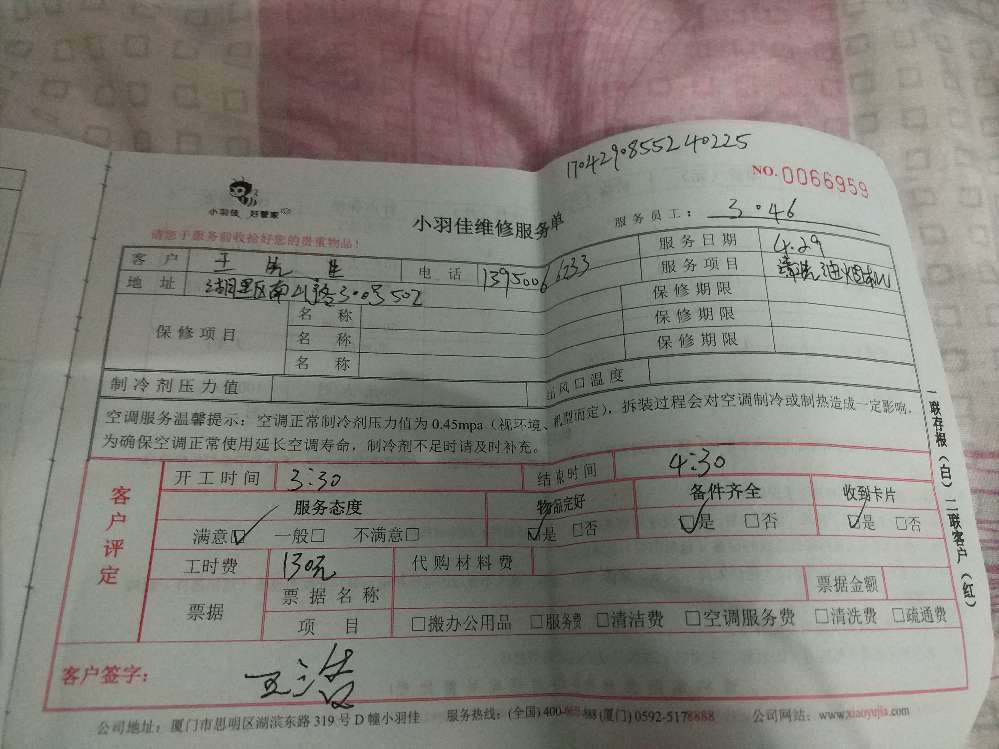 170429085524 0225
NO. 0066959
小羽佳 好管家
小羽佳维修服务单
服务员工： 3046
请您于服务前收拾好您的贵重物品！
客户 王先生 电话 13950066233 服务日期 4.29
地址 湖里区南山路300号502 服务项目 清洗油烟机
保修项目 名称 保修期限
名称 保修期限
名称 保修期限
制冷剂压力值 出风口温度
空调服务温馨提示：空调正常制冷剂压力值为 0.45mpa（视环境、机型而定），拆装过程会对空调制冷或制热造成一定影响。
为确保空调正常使用延长空调寿命，制冷剂不足时请及时补充。
客户评定
开工时间 3:30 结束时间 4:30
服务态度 物品完好 备件齐全 收到卡片
满意☑ 一般□ 不满意□ ☑是 □否 ☑是 □否 ☑是 □否
工时费 130元 代购材料费
票据 票据名称 票据金额
项目 □搬办公用品 □服务费 □清洁费 □空调服务费 □清洗费 □疏通费
客户签字：
公司地址：厦门市思明区湖滨东路 319 号 D 幢小羽佳 服务热线：(全国) 400- -888 (厦门) 0592-5178888 公司网站：www.xiaoyujia.com
一联存根（白）二联客户（红）